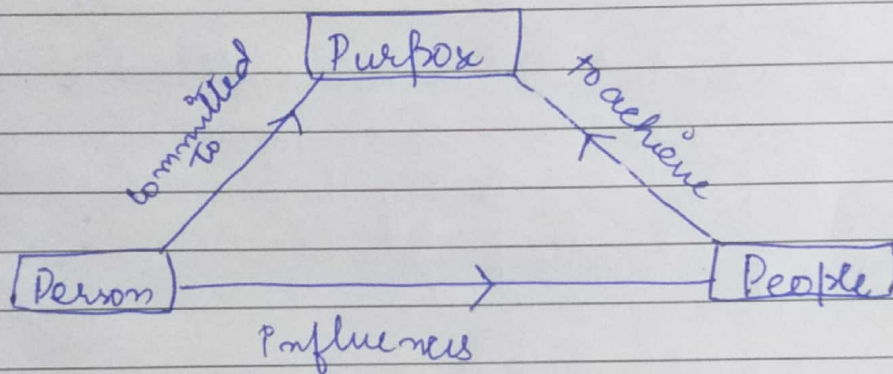 Purpose
committed
to
to achieve
Person
People
Influences